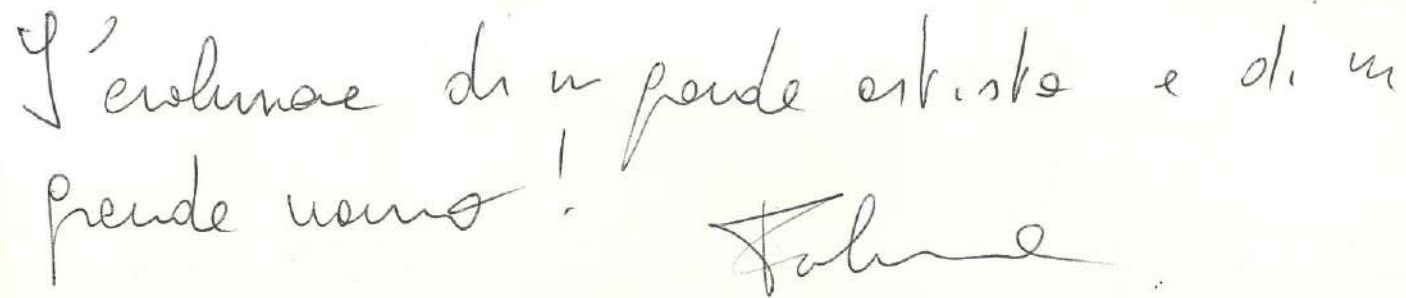 L'evoluzione di un grande artista e di un
grande uomo!